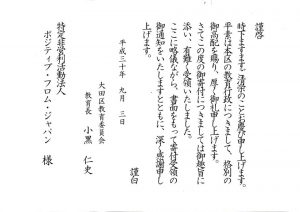 謹啓
時下ますます、ご清栄のこととお慶び申し上げます。
平素は本区の教育行政につきまして、格別の
御高配を賜り、厚く御礼申し上げます。
さてこの度の御寄付につきましては御趣旨に
添い、有難く受領いたしました。
ここに略儀ながら、書面をもって寄付受領の
御通知をいたしますとともに、深く感謝申し
上げます。
謹白
平成三十年 九月 三日
大田区教育委員会
教育長 小黒 仁史
特定非営利活動法人
ポジティブ・フロム・ジャパン 様